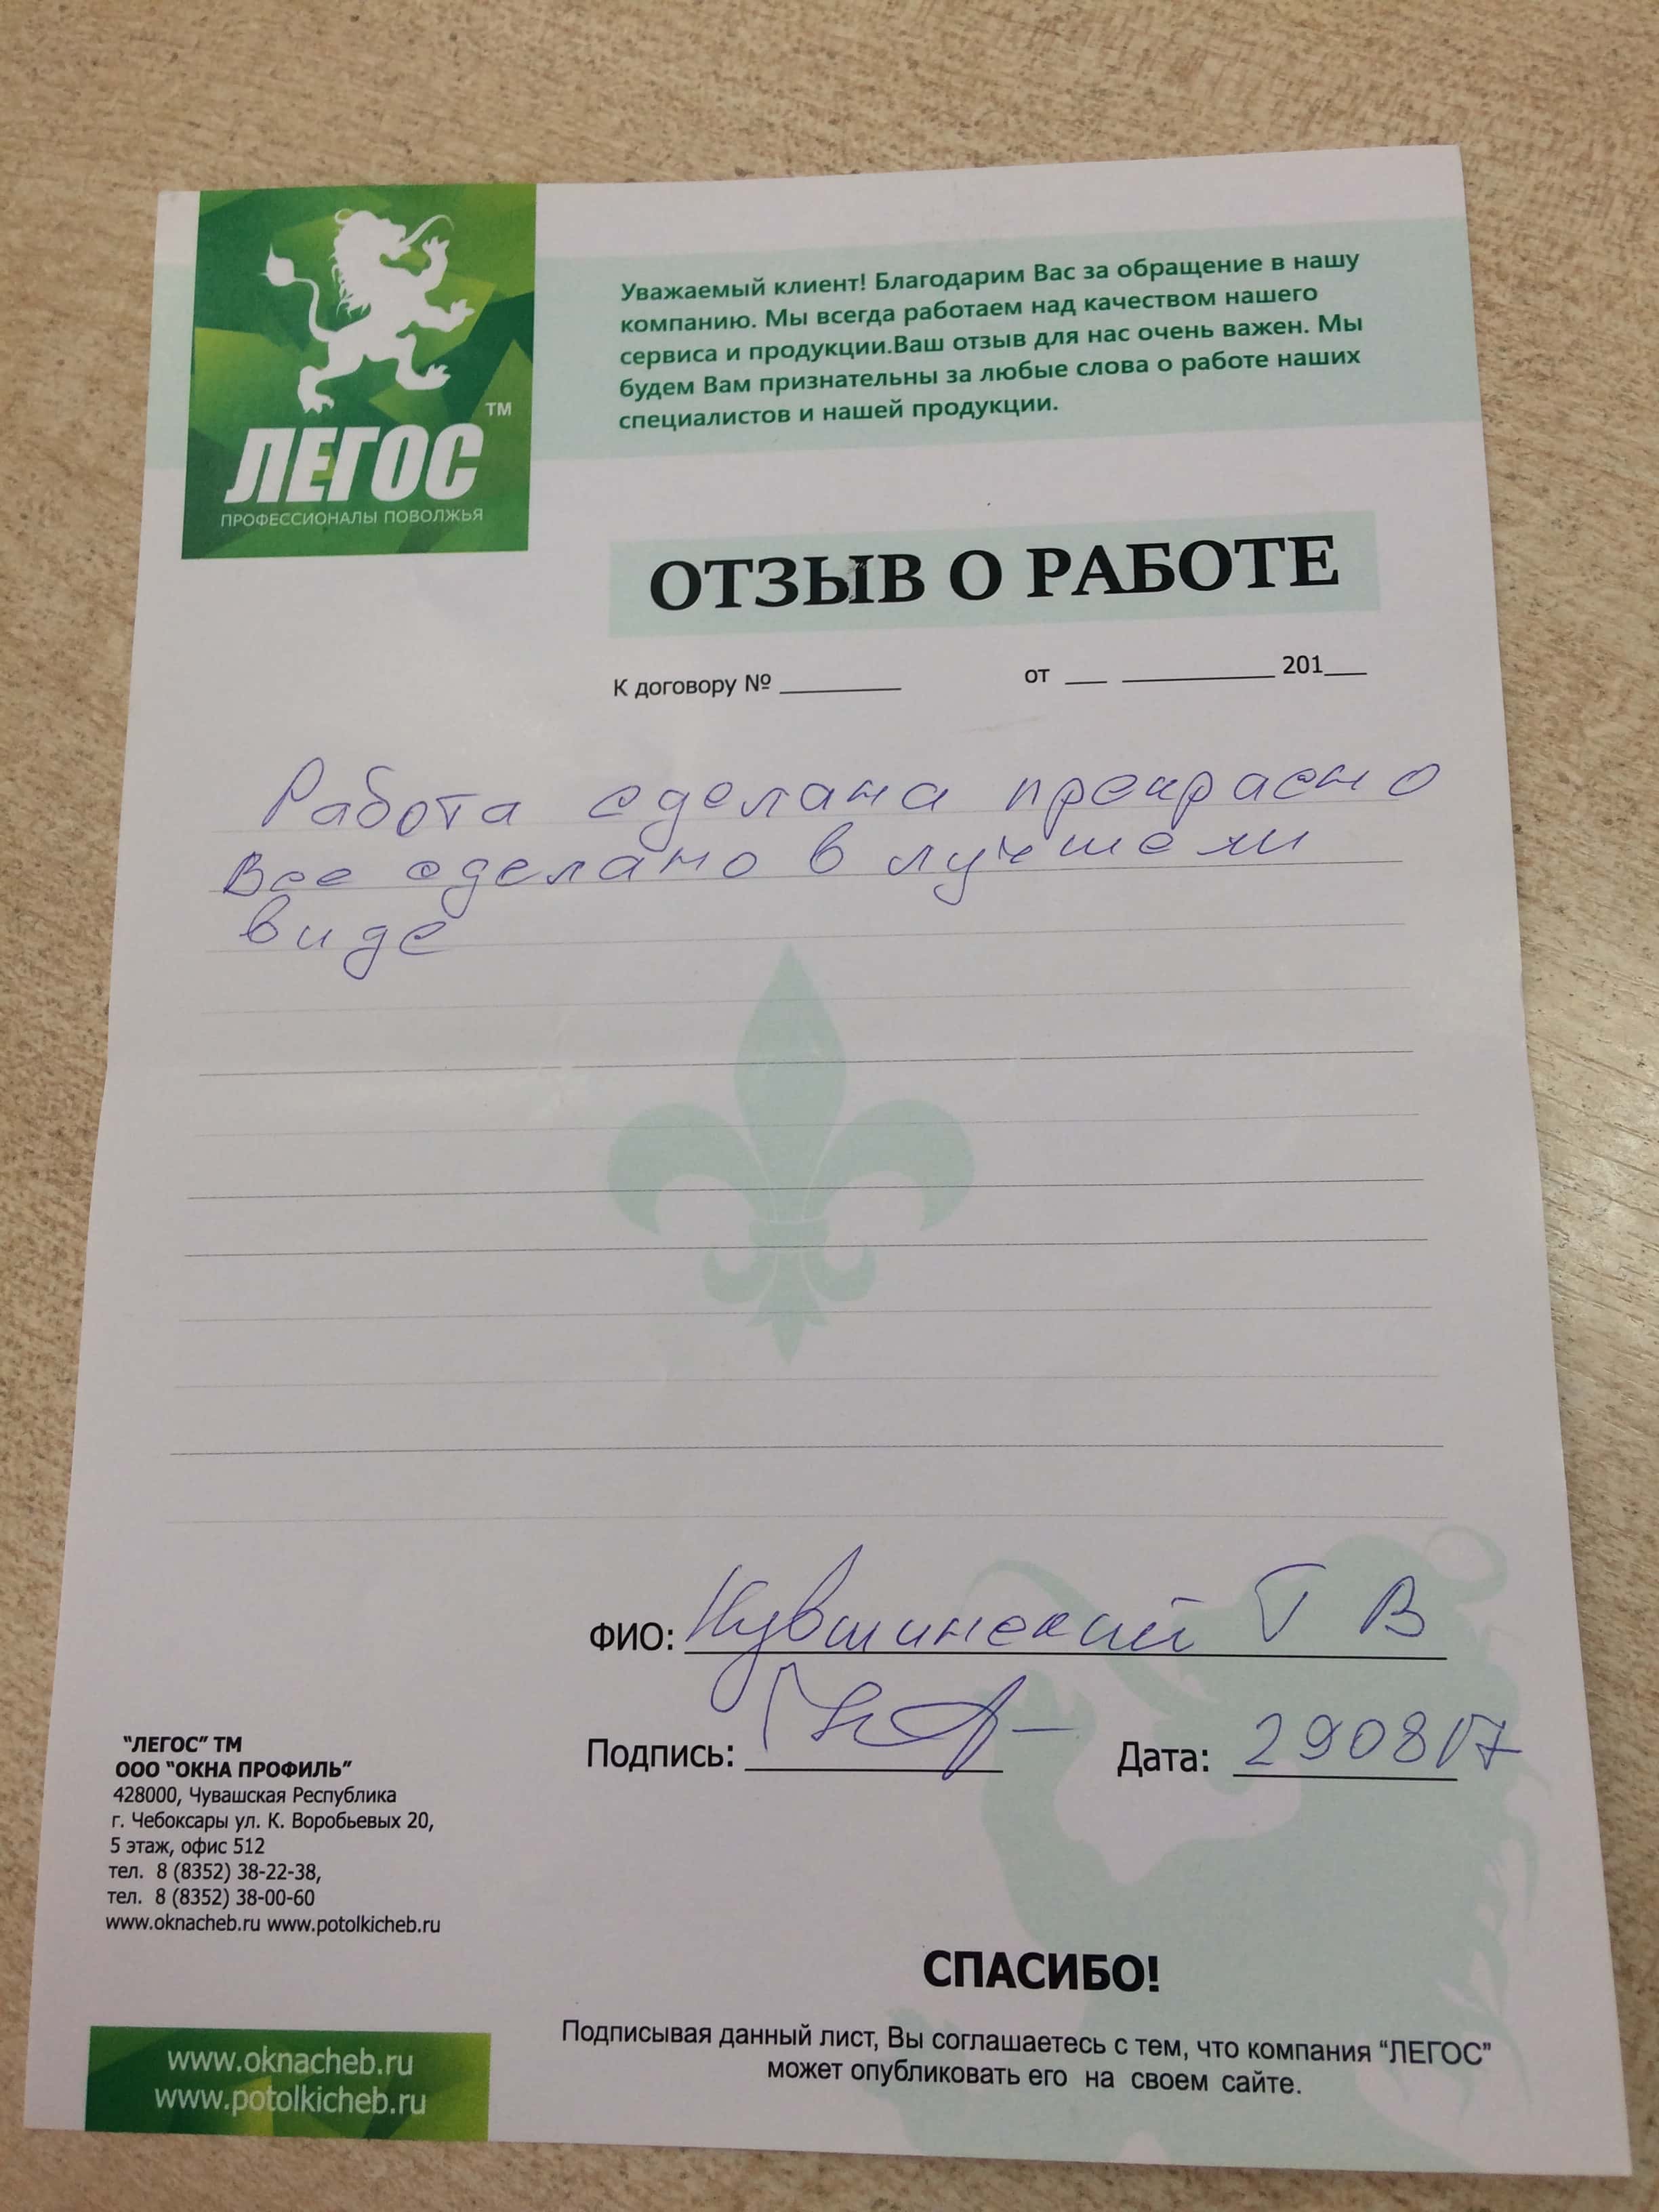 ЛЕГОС ТМ
ПРОФЕССИОНАЛЫ ПОВОЛЖЬЯ
Уважаемый клиент! Благодарим Вас за обращение в нашу
компанию. Мы всегда работаем над качеством нашего
сервиса и продукции.Ваш отзыв для нас очень важен. Мы
будем Вам признательны за любые слова о работе наших
специалистов и нашей продукции.
ОТЗЫВ О РАБОТЕ
К договору № ________ от ___ __________ 201___
Работа сделана прекрасно
Все сделано в лучшем
виде
ФИО: Кувшинский Г В
Подпись: Дата: 290817
"ЛЕГОС" ТМ
ООО "ОКНА ПРОФИЛЬ"
428000, Чувашская Республика
г. Чебоксары ул. К. Воробьевых 20,
5 этаж, офис 512
тел. 8 (8352) 38-22-38,
тел. 8 (8352) 38-00-60
www.oknacheb.ru www.potolkicheb.ru
www.oknacheb.ru
www.potolkicheb.ru
СПАСИБО!
Подписывая данный лист, Вы соглашаетесь с тем, что компания "ЛЕГОС"
может опубликовать его на своем сайте.